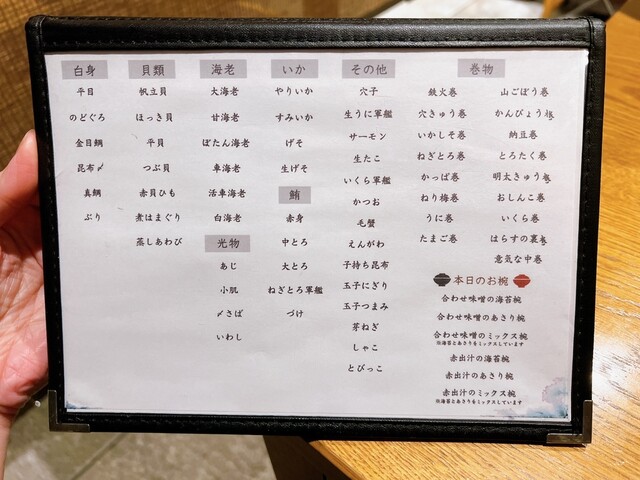 白身
平目
のどぐろ
金目鯛
昆布〆
真鯛
ぶり
貝類
帆立貝
ほっき貝
平貝
つぶ貝
赤貝ひも
煮はまぐり
蒸しあわび
海老
大海老
甘海老
ぼたん海老
車海老
活車海老
白海老
光物
あじ
小肌
〆さば
いわし
いか
やりいか
すみいか
げそ
生げそ
鮪
赤身
中とろ
大とろ
ねぎとろ軍艦
づけ
その他
穴子
生うに軍艦
サーモン
生たこ
いくら軍艦
かつお
毛蟹
えんがわ
子持ち昆布
玉子にぎり
玉子つまみ
芽ねぎ
しゃこ
とびっこ
巻物
鉄火巻
穴きゅう巻
いかしそ巻
ねぎとろ巻
かっぱ巻
ねり梅巻
うに巻
たまご巻
山ごぼう巻
かんぴょう巻
納豆巻
とろたく巻
明太きゅう巻
おしんこ巻
いくら巻
はらすの裏巻
意気な中巻
本日のお椀
合わせ味噌の海苔椀
合わせ味噌のあさり椀
合わせ味噌のミックス椀
※海苔とあさりをミックスしています
赤出汁の海苔椀
赤出汁のあさり椀
赤出汁のミックス椀
※海苔とあさりをミックスしています